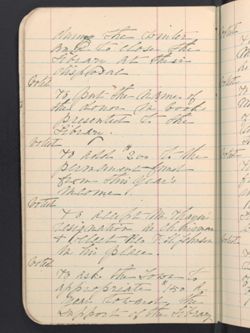 during the winter
and to close the
Library at their
disposal.
Voted
to put the name of
the donor in book
presented to the
Library.
Voted
to add $200 to the
permanent fund
from this year's
income.
Voted
to accept Mr. Thayer's
resignation as Chairman
& elect
in his place.
Voted
to ask the town to
appropriate $150
year towards the
support of the Library